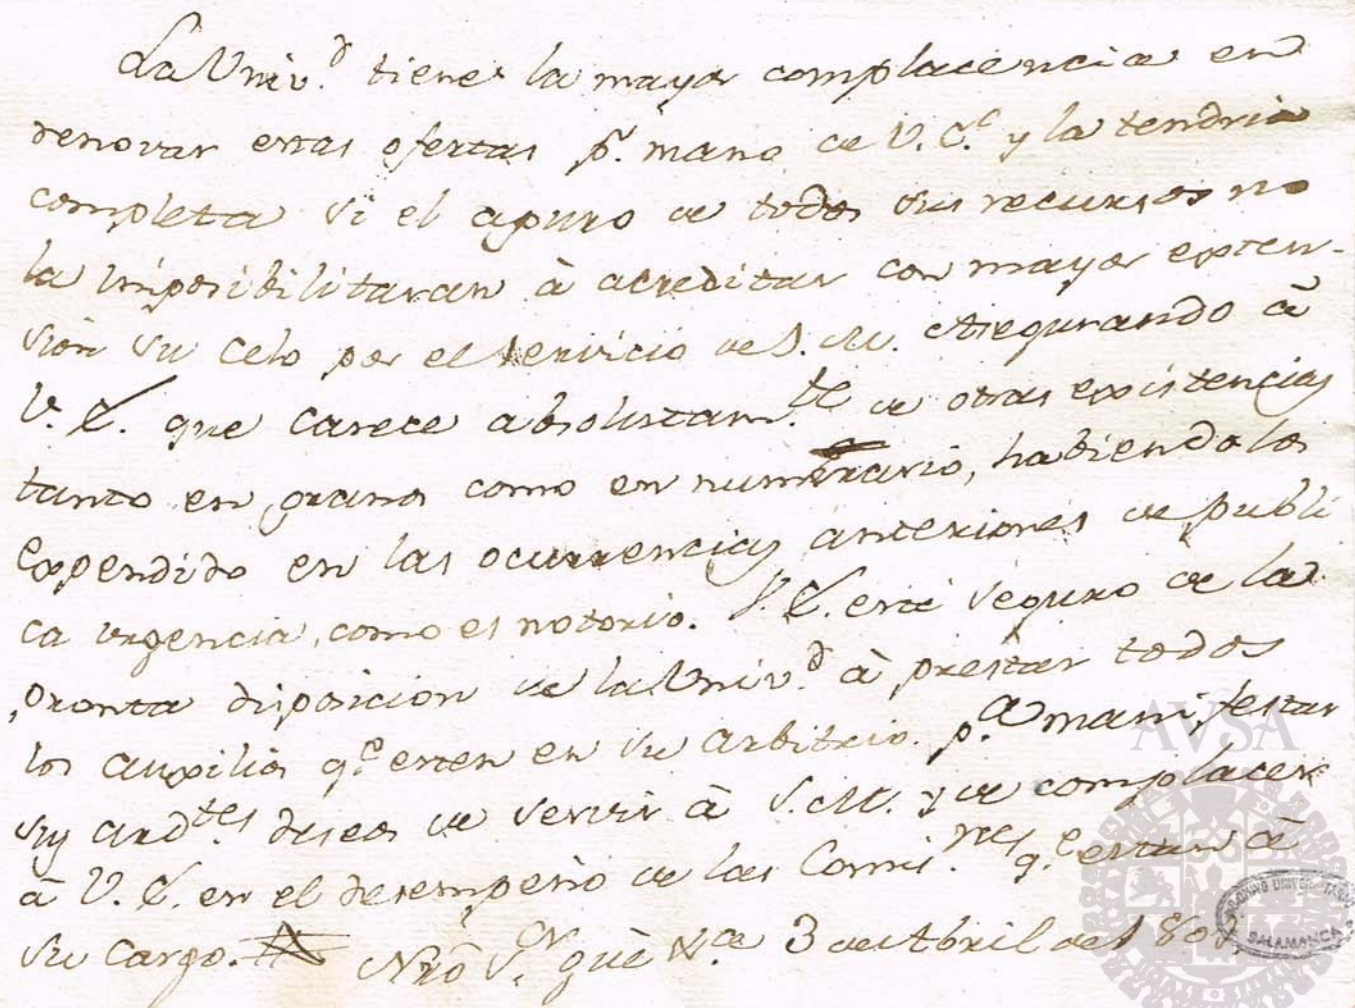 La Univ.d tiene la mayor complacencia en
renovar estas ofertas p.r mano de V.E. y la tendria
completa si el apuro de todos sus recursos no
la imposibilitaran à acreditar con mayor exten-
sion su celo por el servicio de S.M. Asegurando à
V.E. que carece absolutam.te de otras existencias
tanto en granos como en numerario, habiendolos
expendido en las ocurrencias anteriores de publi
ca urgencia, como es notorio. V.E. esté seguro de la
pronta disposicion de la Univ.d à prestar todos
los auxilios q.e esten en su arbitrio p.a manifestar
sus ard.tes deseos de servir à S.M. y de complacer
à V.E. en el desempeño de las Comi.nes q.e estan à
su cargo. Nrô S.or gue à V.E. 3 de Abril de
AVSA
ARCHIVO UNIVERSITARIO
SALAMANCA